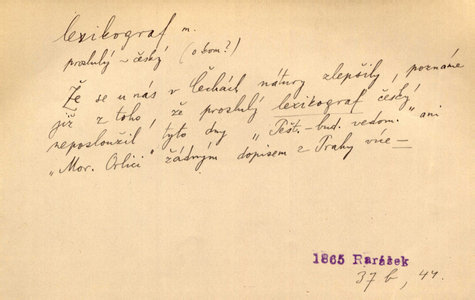 lexikograf m.
proslulý ~ český (o kom?)
Že se u nás v Čechách nátury zlepšily, poznáme
již z toho, že proslulý lexikograf český
neposloužil tyto dny „Pešt.-bud. vedom." ani
„Mor. Orlici" žádným dopisem z Prahy více —
1865 Rarášek
37 b, 44.